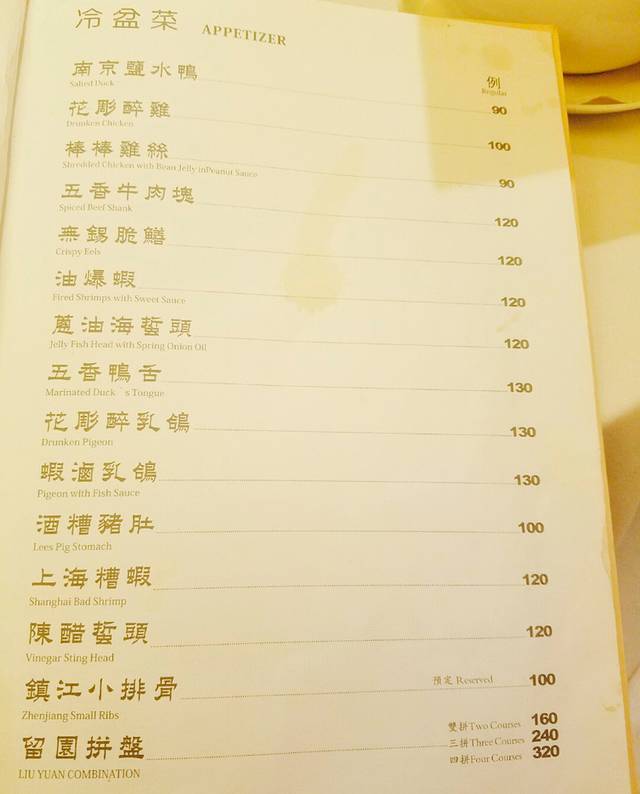 冷盆菜 APPETIZER
例
Regular
南京鹽水鴨 90
Salted Duck
花彫醉雞 100
Drunken Chicken
棒棒雞絲 90
Shredded Chicken with Bean Jelly inPeanut Sauce
五香牛肉塊 120
Spiced Beef Shank
無錫脆鱔 120
Crispy Eels
油爆蝦 120
Fired Shrimps with Sweet Sauce
蔥油海蜇頭 120
Jelly Fish Head with Spring Onion Oil
五香鴨舌 130
Marinated Duck`s Tongue
花彫醉乳鴿 130
Drunken Pigeon
蝦滷乳鴿 130
Pigeon with Fish Sauce
酒糟豬肚 100
Lees Pig Stomach
上海糟蝦 120
Shanghai Bad Shrimp
陳醋蜇頭 120
Vinegar Sting Head
鎮江小排骨 預定 Reserved 100
Zhenjiang Small Ribs
留園拼盤 雙拼Two Courses 160
三拼Three Courses 240
四拼Four Courses 320
LIU YUAN COMBINATION